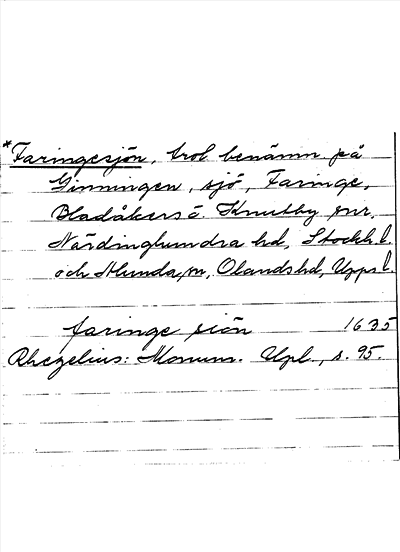 *Faringesjön, trol. benämn. på
Ginningen, sjö, Faringe,
Bladåkers o. Knutby snr,
Närdinghundra hd, Stockh. l.
och Stlunda sn, Olands hd, Upps l.
faringe siön 1635
Rhezelius: Monum. Upl., s. 95.